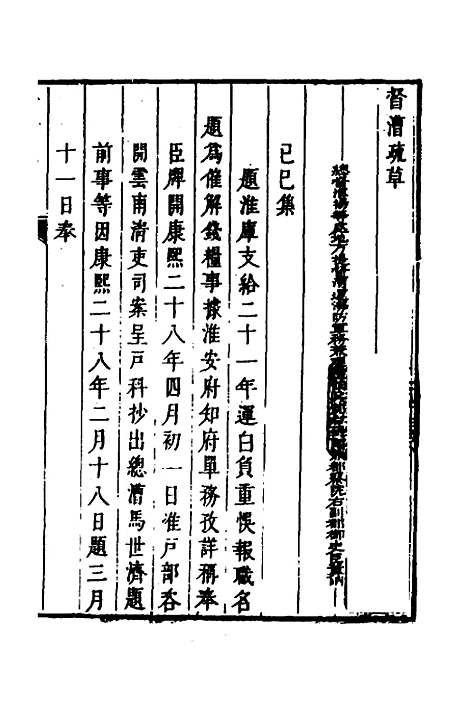 督漕疏草
總督淮揚等處地方提督漕運海防軍務兼
都察院右副都御史臣董訥
己巳集
題淮庫支給二十一年運白負重悞報職名
題爲催解錢糧事據淮安府知府單務孜詳稱奉
臣牌開康熙二十八年四月初一日准戶部咨
開雲南清吏司案呈戶科抄出總漕馬世濟題
前事等因康熙二十八年二月十八日題三月
十一日奉